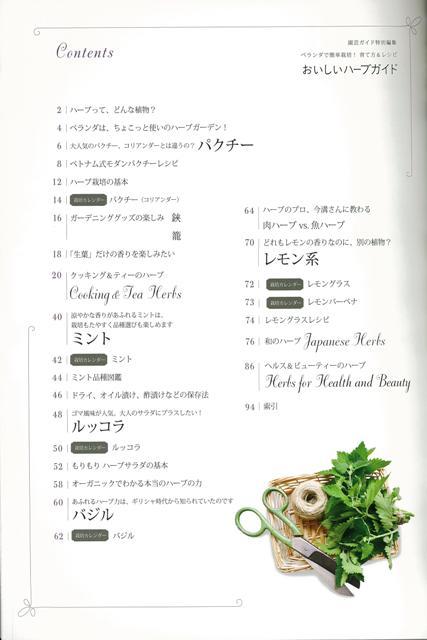 Contents
園芸ガイド特別編集
ベランダで簡単栽培！ 育て方＆レシピ
おいしいハーブガイド
2 ハーブって、どんな植物？
4 ベランダは、ちょこっと使いのハーブガーデン！
6 大人気のパクチー、コリアンダーとは違うの？ パクチー
8 ベトナム式モダンパクチーレシピ
12 ハーブ栽培の基本
14 栽培カレンダー パクチー（コリアンダー）
16 ガーデニンググッズの楽しみ 鋏
籠
18 「生葉」だけの香りを楽しみたい
20 クッキング＆ティーのハーブ
Cooking & Tea Herbs
40 涼やかな香りがあふれるミントは、
栽培もたやすく品種選びも楽しめます
ミント
42 栽培カレンダー ミント
44 ミント品種図鑑
46 ドライ、オイル漬け、酢漬けなどの保存法
48 ゴマ風味が人気。大人のサラダにプラスしたい！
ルッコラ
50 栽培カレンダー ルッコラ
52 もりもり ハーブサラダの基本
58 オーガニックでわかる本当のハーブの力
60 あふれるハーブ力は、ギリシャ時代から知られていたのです
バジル
62 栽培カレンダー バジル
64 ハーブのプロ、今溝さんに教わる
肉ハーブ vs. 魚ハーブ
70 どれもレモンの香りなのに、別の植物？
レモン系
72 栽培カレンダー レモングラス
73 栽培カレンダー レモンバーベナ
74 レモングラスレシピ
76 和のハーブ Japanese Herbs
86 ヘルス＆ビューティーのハーブ
Herbs for Health and Beauty
94 索引